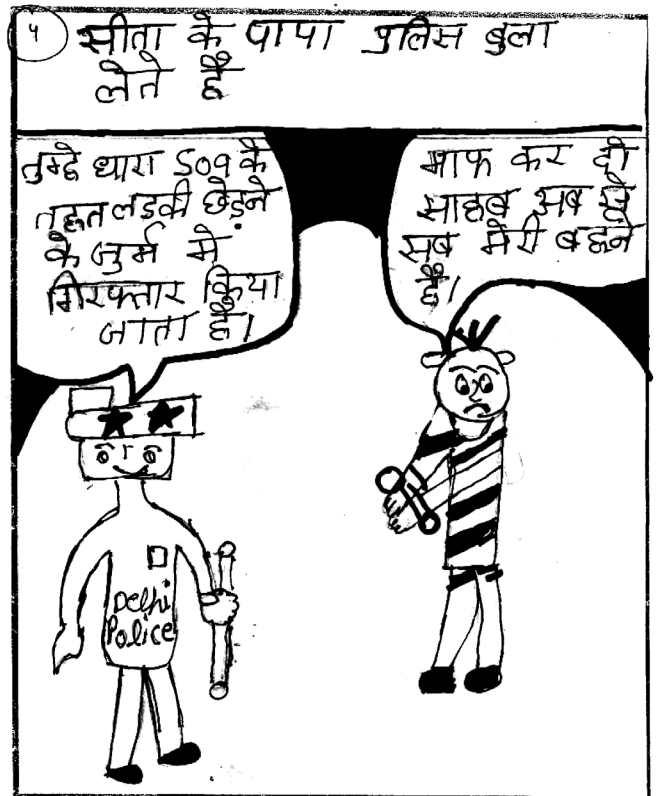 ५ सीता के पापा पुलिस बुला
लेते हैं
तुम्हे धारा 509 के
तहत लडकी छेड़ने
के जुर्म में
गिरफ्तार किया
जाता है।
माफ कर दो
साहब अब से
सब मेरी बहने
हैं।
Delhi
Police